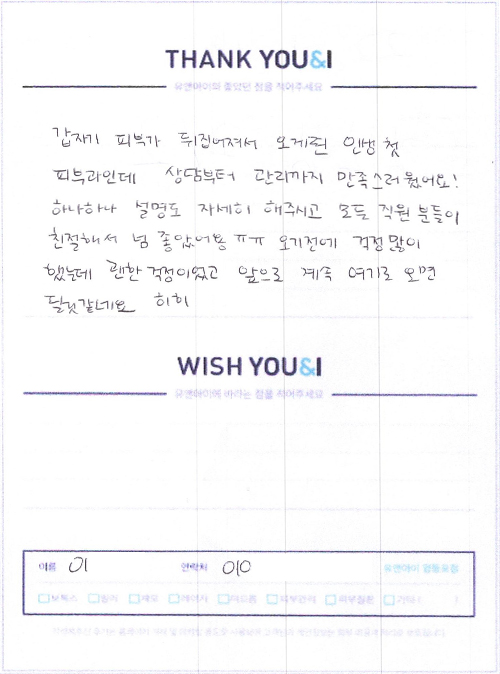 THANK YOU&I
유앤아이의 좋았던 점을 적어주세요
갑자기 피부가 뒤집어져서 오게된 인생 첫
피부과인데 상담부터 관리까지 만족스러웠어요!
하나하나 설명도 자세히 해주시고 모든 직원 분들이
친절해서 넘 좋았어용 ㅠㅠ 오기전에 걱정많이
했는데 괜한 걱정이었고 앞으로 계속 여기로 오면
될것같네요 히히
WISH YOU&I
유앤아이에 바라는 점을 적어주세요
이름 이 연락처 010 유앤아이 협동요정
보톡스 필러 제모 레이저 여드름 피부관리 피부질환 기타 ( )